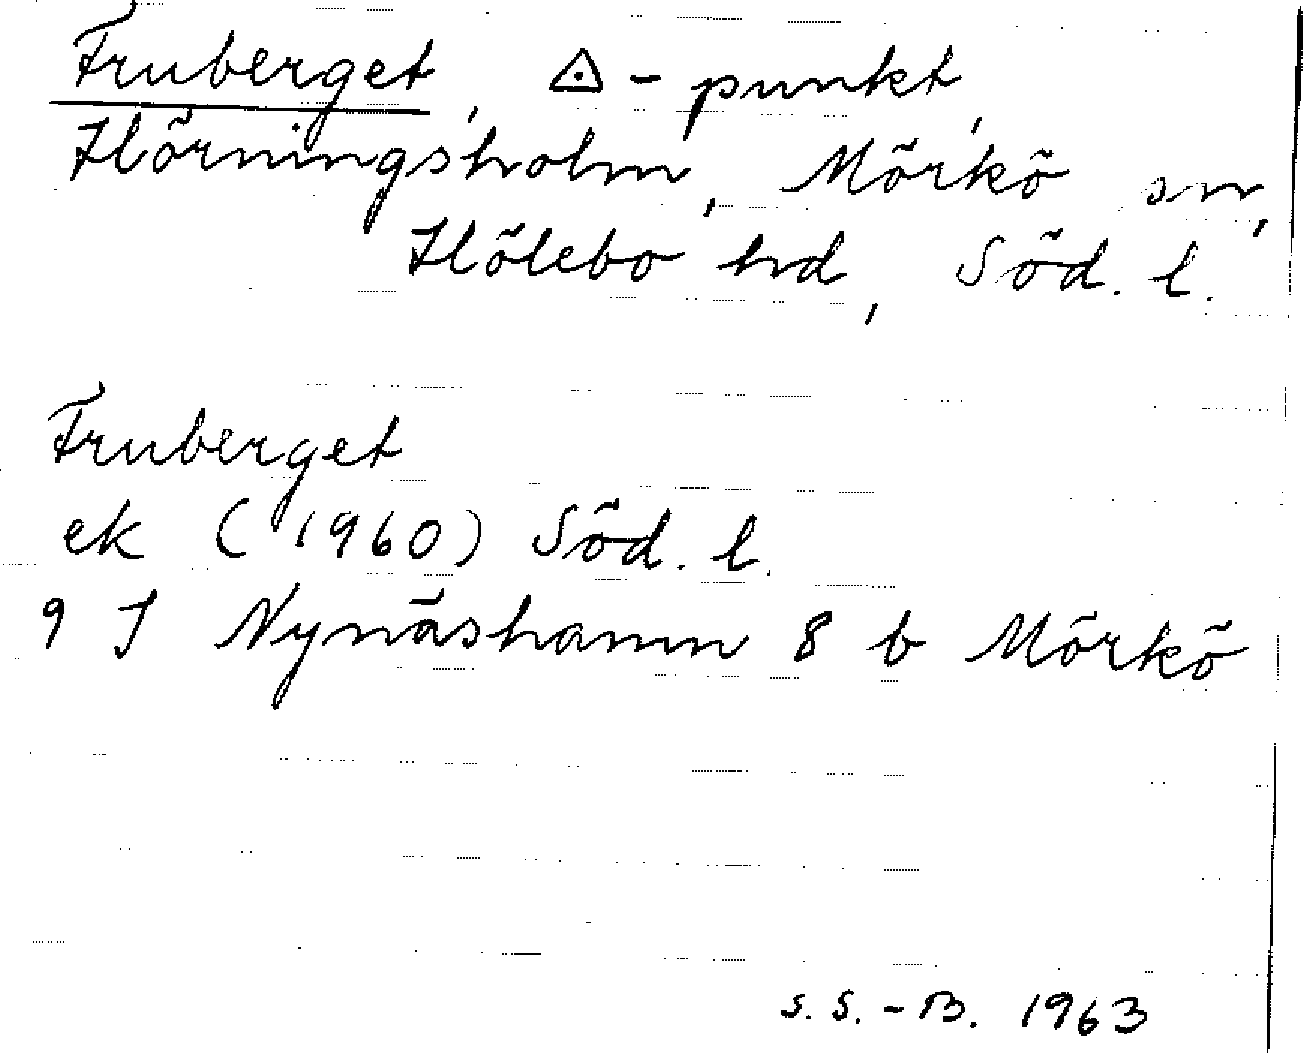 Fruberget, △-punkt,
Hörningsholm, Mörkö sn,
Hölebo hd, Söd. l.
Fruberget
ek (1960) Söd. l.
9 I Nynäshamn 8 b Mörkö
S. S.-B. 1963